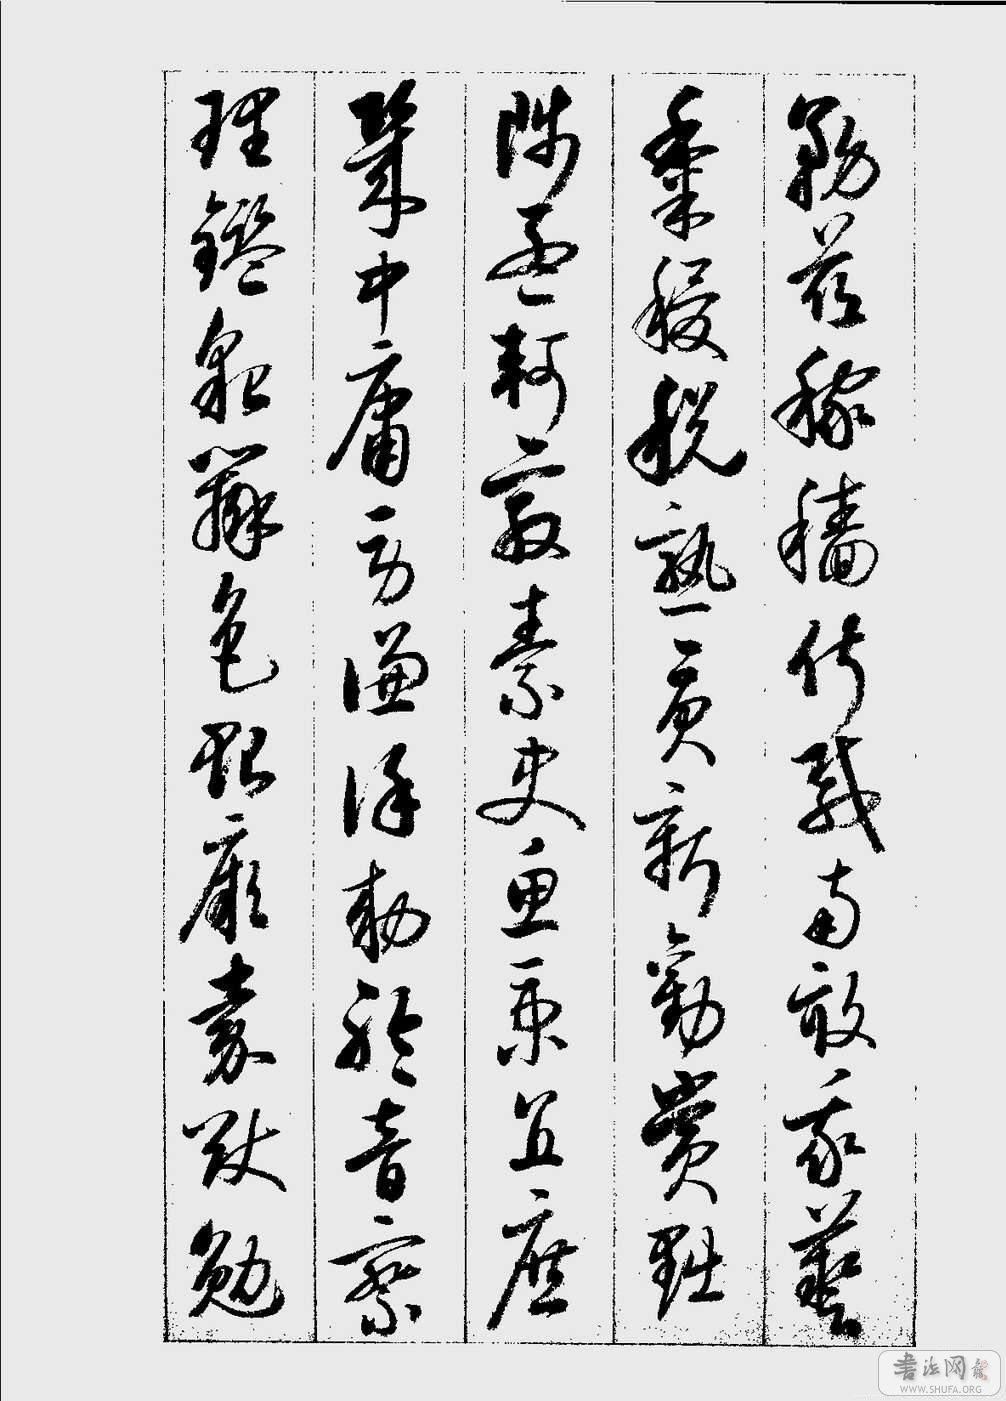 務茲稼穡俶載南畝我藝
黍稷稅熟貢新勸賞黜
陟孟軻敦素史魚秉直庶
幾中庸勞謙謹敕聆音察
理鑑貌辨色貽厥嘉猷勉
書法网
WWW.SHUFA.ORG